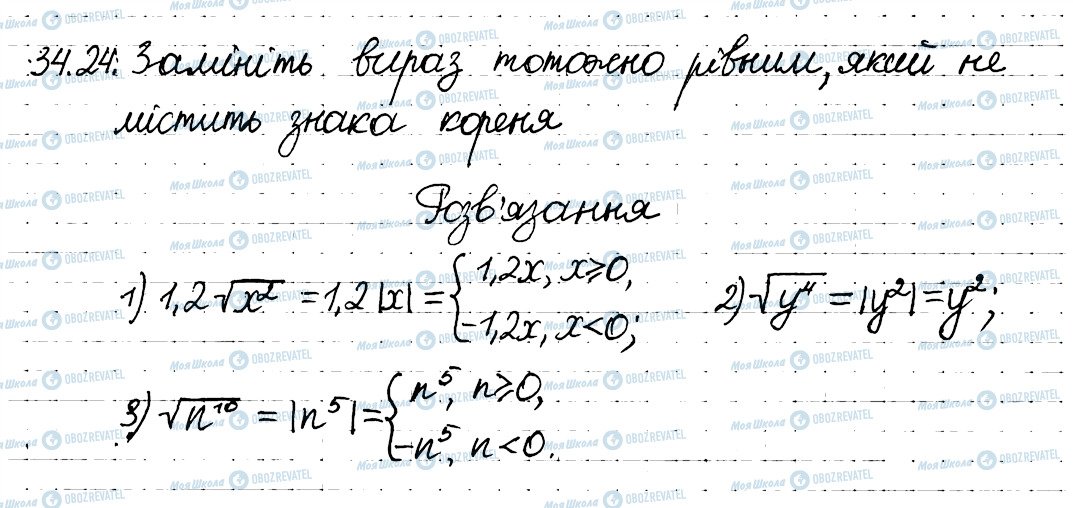 34.24. Замініть вираз тотожно рівним, який не
містить знака кореня
Розв'язання
1) 1,2√x² = 1,2|x| = { 1,2x, x≥0, -1,2x, x<0; 2) √y⁴ = |y²| = y²;
3) √n¹⁰ = |n⁵| = { n⁵, n≥0, -n⁵, n<0.